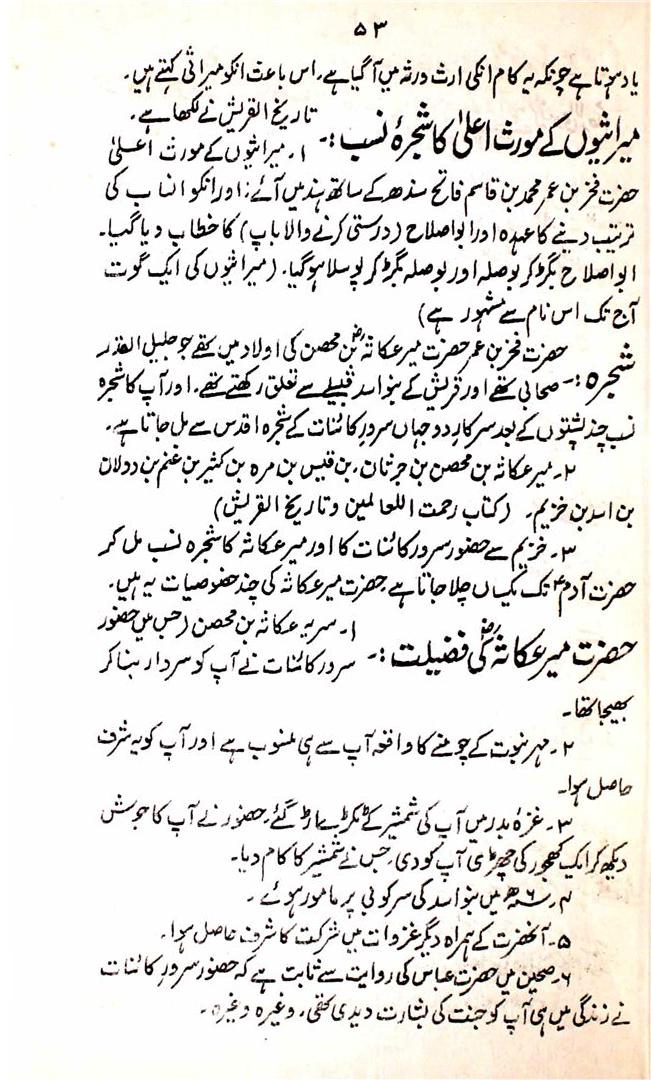 ۵۳
یاد ہوتا ہے چونکہ یہ کام انکی ارث ورثہ میں آگیا ہے۔ اس باعث انکو میراثی کہتے ہیں۔
تاریخ القریش نے لکھا ہے۔
میراثیوں کے مورث اعلیٰ کا شجرۂ نسب :۔ ۱۔ میراثیوں کے مورث اعلیٰ
حضرت فخر بن عمر محمد بن قاسم فاتح سندھ کے ساتھ ہند میں آئے، اور انکو انساب کی
ترتیب دینے کا عہدہ اور ابو اصلاح (درستی کرنے والا باپ) کا خطاب دیا گیا۔
ابو اصلاح بگڑ کر بوصلہ اور بوصلہ بگڑ کر پوسلا ہوگیا۔ (میراثیوں کی ایک گوت
آج تک اس نام سے مشہور ہے)
شجرہ :۔ حضرت فخر بن عمر حضرت میر عکاشہؓ بن محصن کی اولاد میں تھے جو جلیل القدر
صحابی تھے اور قریش کے بنو اسد قبیلے سے تعلق رکھتے تھے۔ اور آپ کا شجرہ
نسب چند پشتوں کے بعد سرکار دو جہاں سرور کائنات کے شجرہ اقدس سے مل جاتا ہے۔
۲۔ میر عکاشہ بن محصن بن حرثان، بن قیس بن مرہ بن کثیر بن غنم بن دولان
بن اسد بن خزیم۔ (کتاب رحمت اللعالمین و تاریخ القریش)
۳۔ خزیم سے حضور سرور کائنات کا اور میر عکاشہ کا شجرہ نسب مل کر
حضرت آدمؑ تک یکساں چلا جاتا ہے۔ حضرت میر عکاشہ کی چند خصوصیات یہ ہیں۔
حضرت میر عکاشہؓ کی فضیلت :۔ ۱۔ سریہ عکاشہ بن محصن (جس میں حضور
سرور کائنات نے آپ کو سردار بنا کر
بھیجا تھا۔
۲۔ مہر نبوت کے چومنے کا واقعہ آپ سے ہی منسوب ہے اور آپ کو یہ شرف
حاصل ہوا۔
۳۔ غزہ بدر میں آپ کی شمشیر کے ٹکڑے اڑ گئے، حضور نے آپ کا جوش
دیکھ کر ایک کھجور کی چھڑی آپ کو دی، جس نے شمشیر کا کام دیا۔
۴۔ ۶ھ میں بنو اسد کی سرکوبی پر مامور ہوئے۔
۵۔ آنحضرت کے ہمراہ دیگر غزوات میں شرکت کا شرف حاصل ہوا۔
۶۔ صحین میں حضرت عباس کی روایت سے ثابت ہے کہ حضور سرور کائنات
نے زندگی میں ہی آپ کو جنت کی بشارت دیدی تھی۔ وغیرہ وغیرہ۔